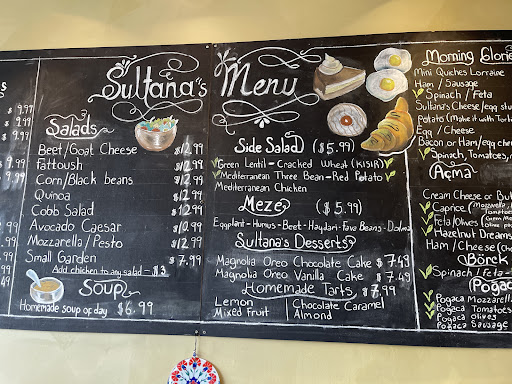 s
$ 9.97
$ 9.99
$ 9.99
$ 9.99
9.99
9.99
Sultana's
Salads
Beet/Goat Cheese $12.99
Fattoush $12.99
Corn/Black beans $12.99
Quinoa $12.99
Cobb Salad $12.99
Avocado Caesar $10.99
Mozzarella/Pesto $12.99
Small Garden $7.99
Add chicken to any salad - $3
Soup
Homemade soup of day $6.99
Menu
Side Salad ($5.99)
Green Lentil - Cracked Wheat (KISIR)
Mediterranean Three Bean-Red Potato
Mediterranean Chicken
Meze ($5.99)
Eggplant-Humus-Beet-Haydari-Fava Beans-Dolma
Sultana's Desserts
Magnolia Oreo Chocolate Cake $7.49
Magnolia Oreo Vanilla Cake $7.49
Homemade Tarts $7.99
Lemon
Mixed Fruit
Chocolate Caramel
Almond
Morning Glorie
Mini Quiches Lorraine
Ham / Sausage
Spinach / Feta
Sultana's Cheese/egg stu
Potato (Make it with Torti
Egg / Cheese
Bacon or Ham/egg chee
Spinach, Tomatoes,
Açma
Cream Cheese or But
Caprice (Mozzarella,
Tomatoes
Feta/Olives
Hazelnut Dreams
Ham/Cheese
Börek
Spinach/Feta-
Poğac
Pogaca Mozzarell
Pogaca Tomatoes
Pogaca olives
Pogaca Sausage